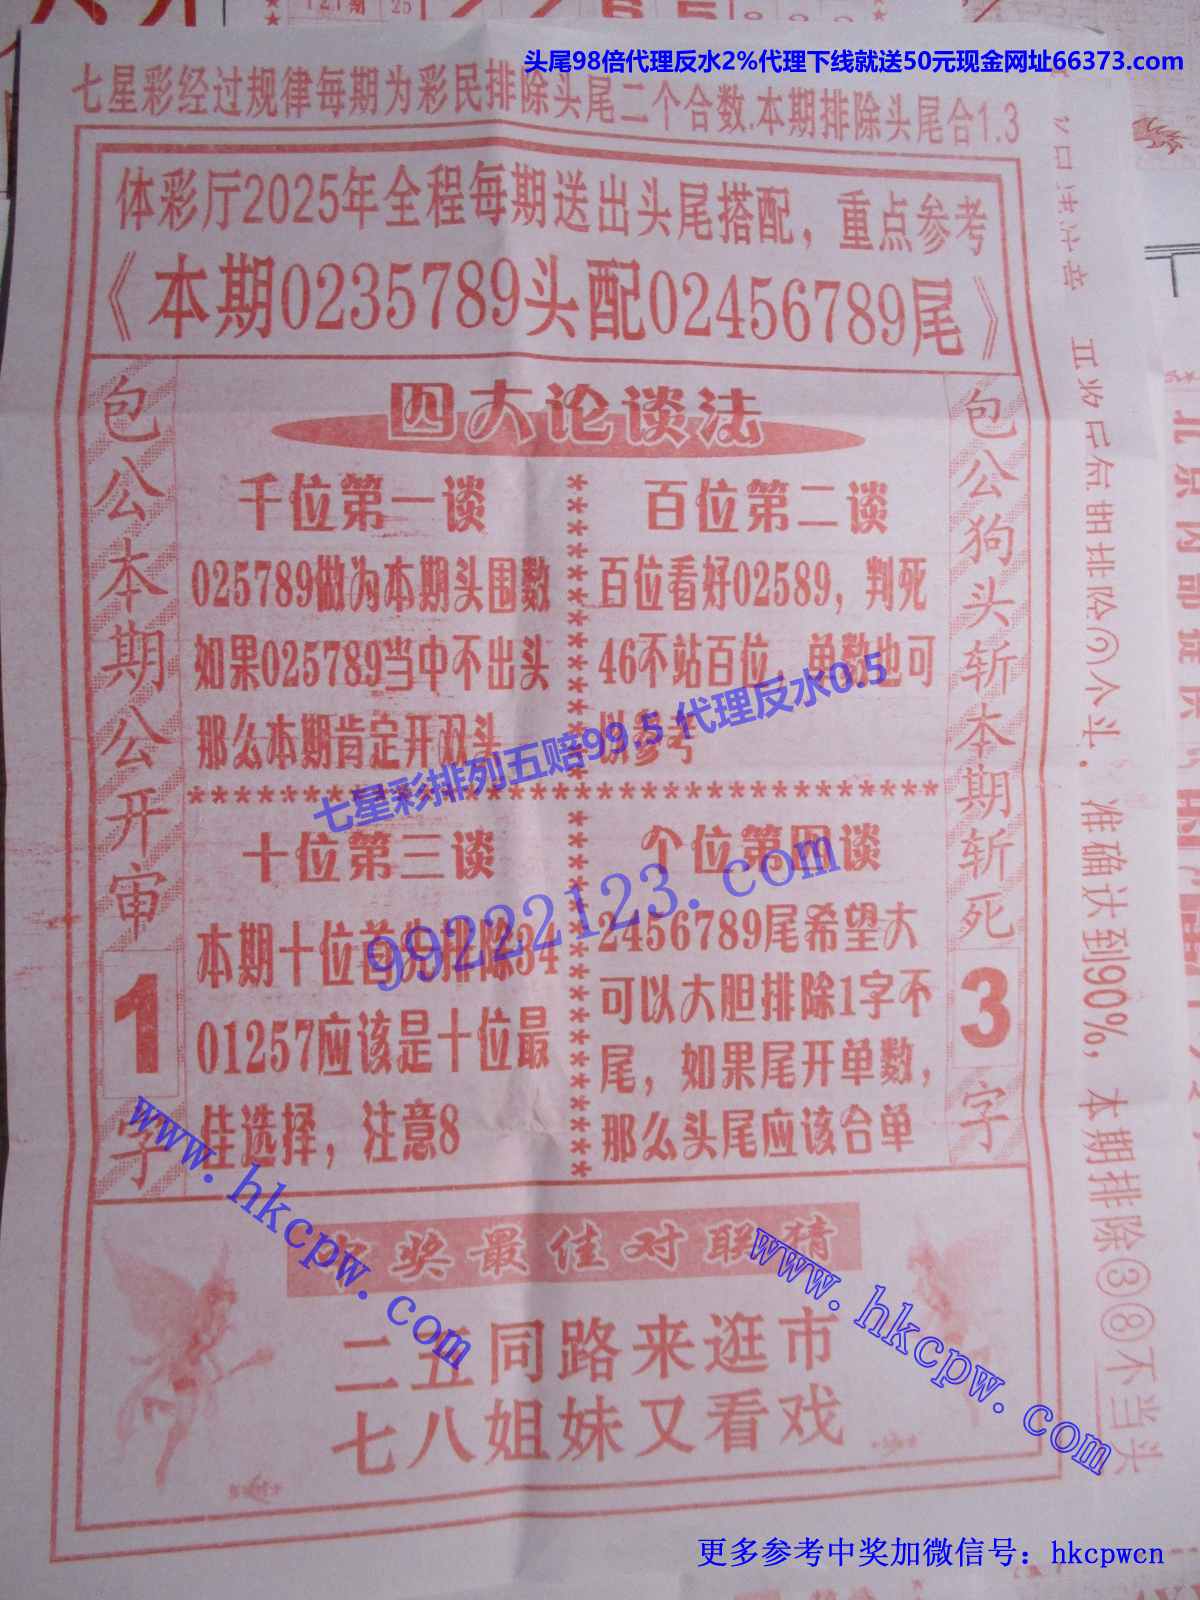 121期 25
头尾98倍代理反水2%代理下线就送50元现金网址66373.com
七星彩经过规律每期为彩民排除头尾二个合数.本期排除头尾合1.3
体彩厅2025年全程每期送出头尾搭配，重点参考
《本期0235789头配02456789尾》
包公本期公开审1字
四大论谈法
千位第一谈
025789做为本期头围数
如果025789当中不出头
那么本期肯定开双头
百位第二谈
百位看好02589，判死
46不站百位，单数也可
以参考
十位第三谈
本期十位首先排除34
01257应该是十位最
佳选择，注意8
个位第四谈
2456789尾希望大
可以大胆排除1字不
尾，如果尾开单数，
那么头尾应该合单
包公狗头斩本期斩死3字
七星彩排列五赔99.5 代理反水0.5
99222123.com
www.hkcpw.com
www.hkcpw.com
奖最佳对联猜
二五同路来逛市
七八姐妹又看戏
准确达到90%，本期排除③⑧不当头
北京内部提供
更多参考中奖加微信号：hkcpwcn